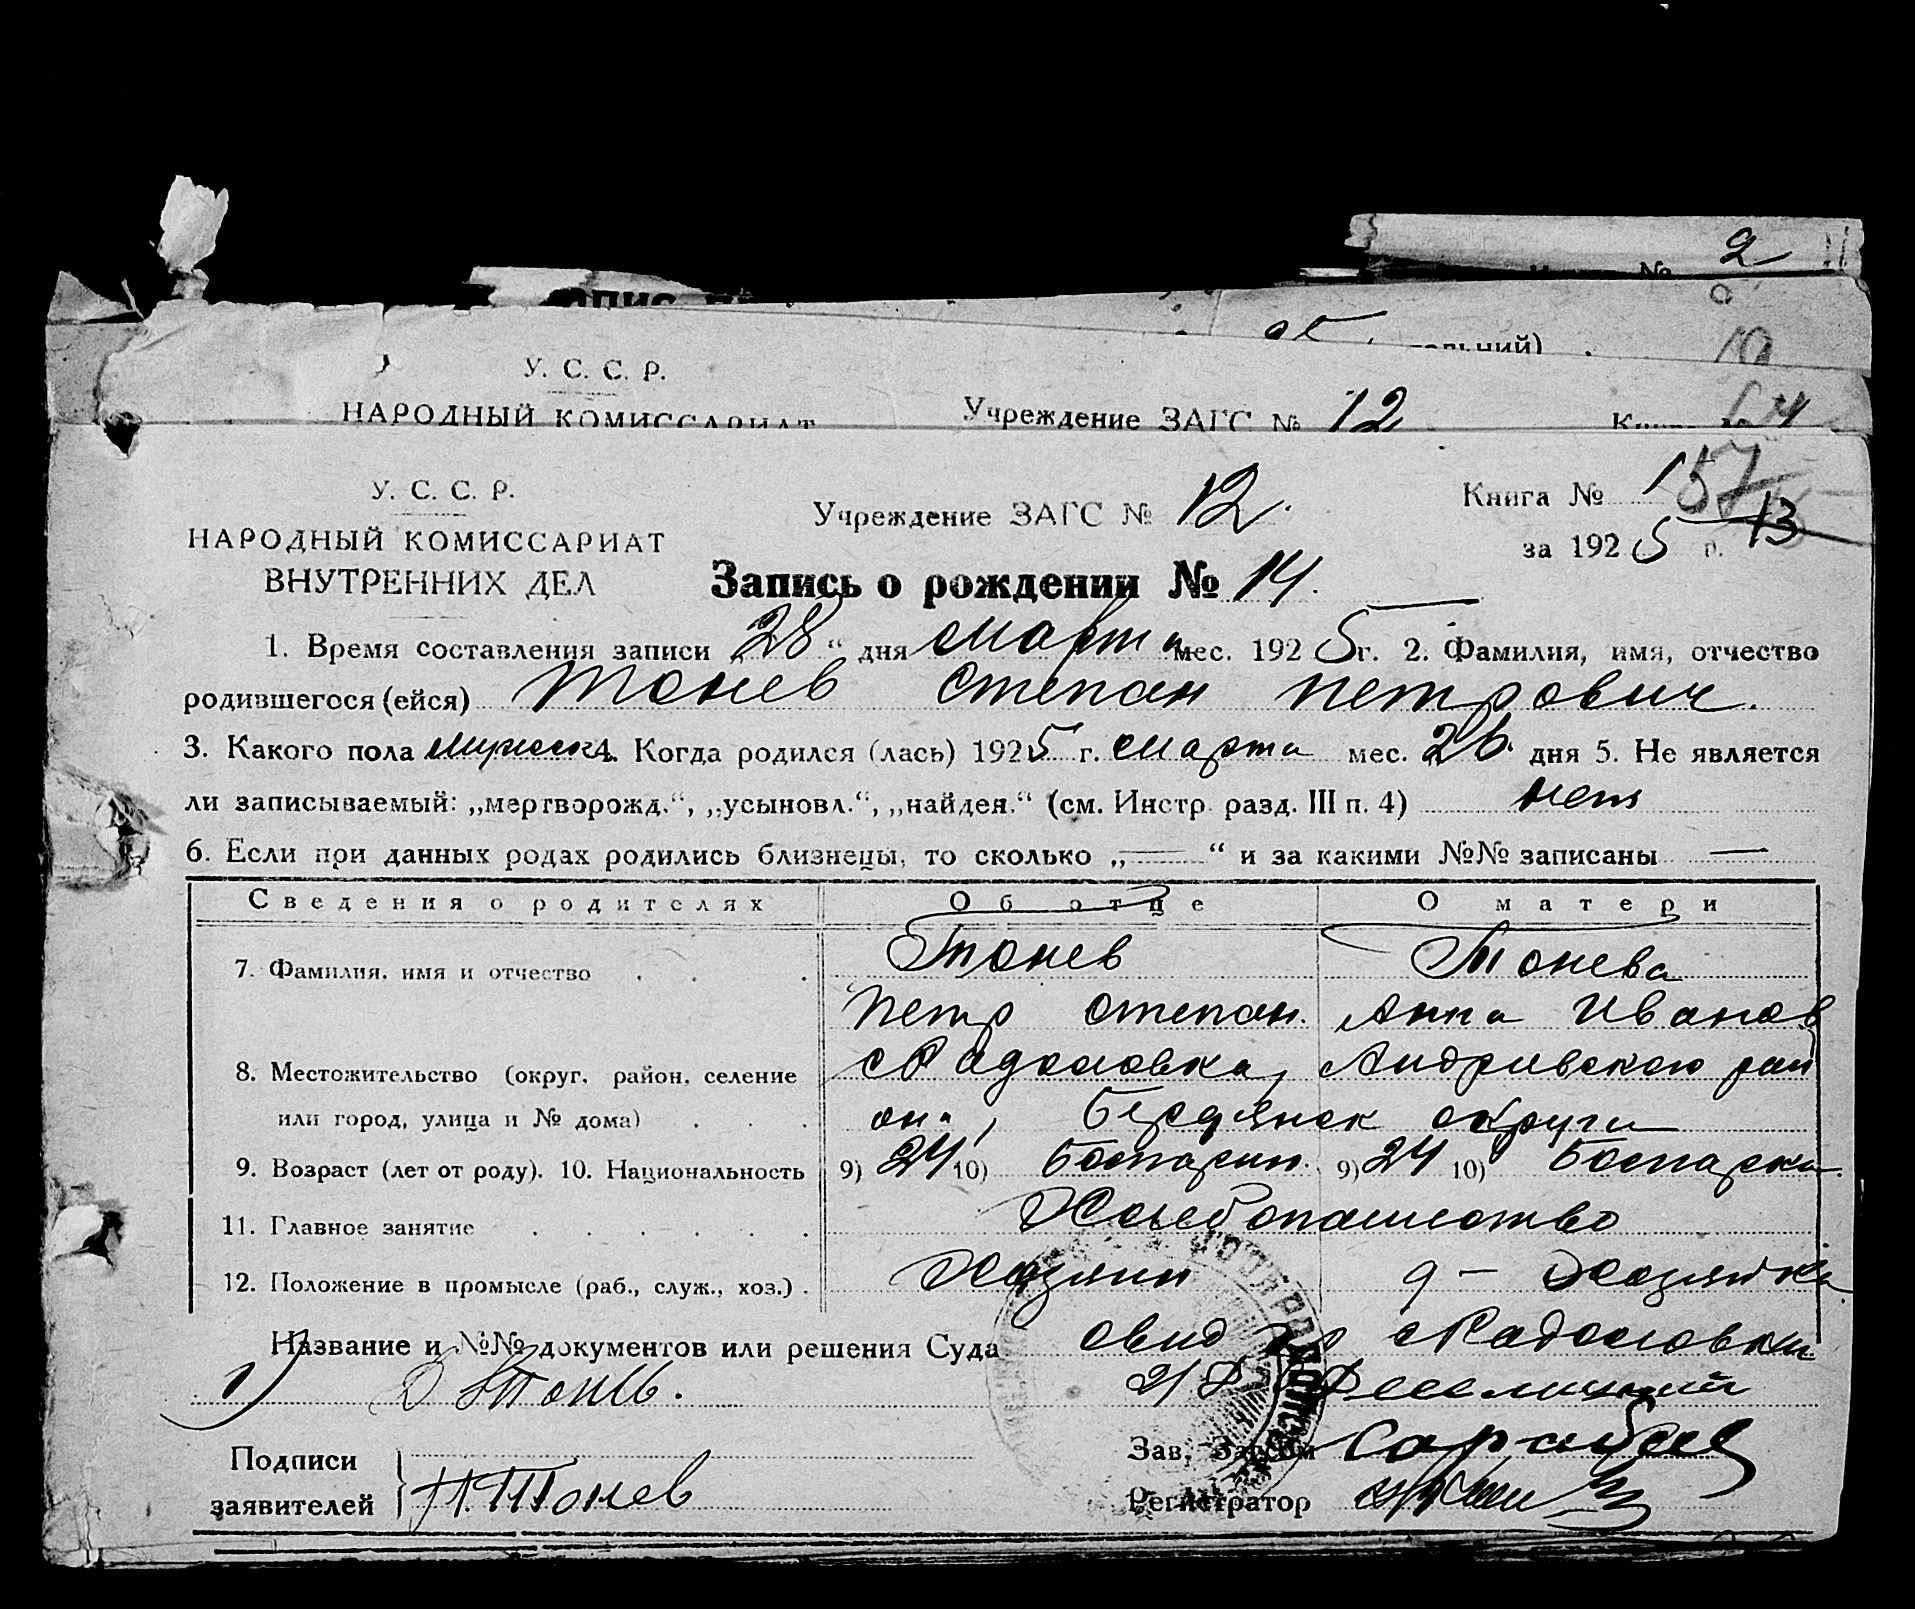 № 2
опис
25
тельний)
19
У. С. С. Р.
НАРОДНЫЙ КОМИССАРИАТ
Учреждение ЗАГС № 12
У. С. С. Р.
НАРОДНЫЙ КОМИССАРИАТ
ВНУТРЕННИХ ДЕЛ
Учреждение ЗАГС № 12.
Книга № 1 57
за 1925 г. 13
Запись о рождении № 14.
1. Время составления записи „28“ дня марта мес. 1925 г. 2. Фамилия, имя, отчество
родившегося (ейся) Тонев Степан Петрович.
3. Какого пола мужск 4. Когда родился (лась) 1925 г. марта мес. 26. дня 5. Не является
ли записываемый: „мертворожд.“, „усыновл.“, „найден.“ (см. Инстр. разд. III п. 4) нет
6. Если при данных родах родились близнецы, то сколько „—“ и за какими №№ записаны —
Сведения о родителях Об отце О матери
7. Фамилия, имя и отчество Тонев Тонева
Петр Степан. Анна Иванов
8. Местожительство (округ, район, селение с Радоловка, Андриевского рай
или город, улица и № дома) она, Бердянск округи
9. Возраст (лет от роду). 10. Национальность 9) 24 10) Болгарин. 9) 24 10) Болгарка.
11. Главное занятие Хлебопашество
12. Положение в промысле (раб., служ., хоз.) Хозяин д — Хозяйка
Название и №№ документов или решения Суда с Радоловки
1)
Подписи
заявителей П. Тонев
Зав. Загсом
Регистратор